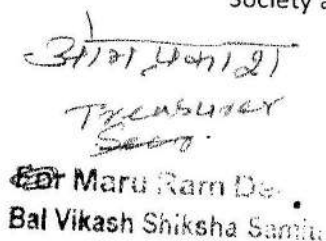 Society a
ओम प्रकाश
Treasurer
Secy.
For Maru Ram De
Bal Vikash Shiksha Samit